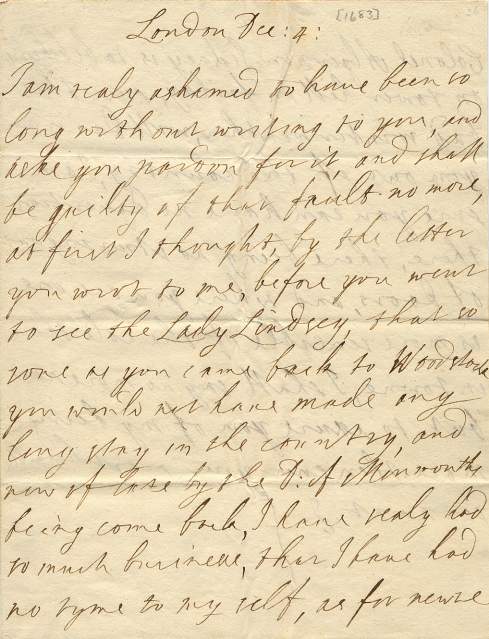 [1683]
London Dec: 4:
I am realy ashamed to have been so
long without writing to you, and
aske you pardon for it, and shall
be guilty of that fault no more,
at first I thought, by the letter
you wrot to me, before you went
to see the Lady Lindsey, that so
sone as you came back to Woodstock
you would not have made any
long stay in the country, and
now of late by the D: of Monmouths
being come back, I have realy had
so much business, that I have had
no tyme to my self, as for newse